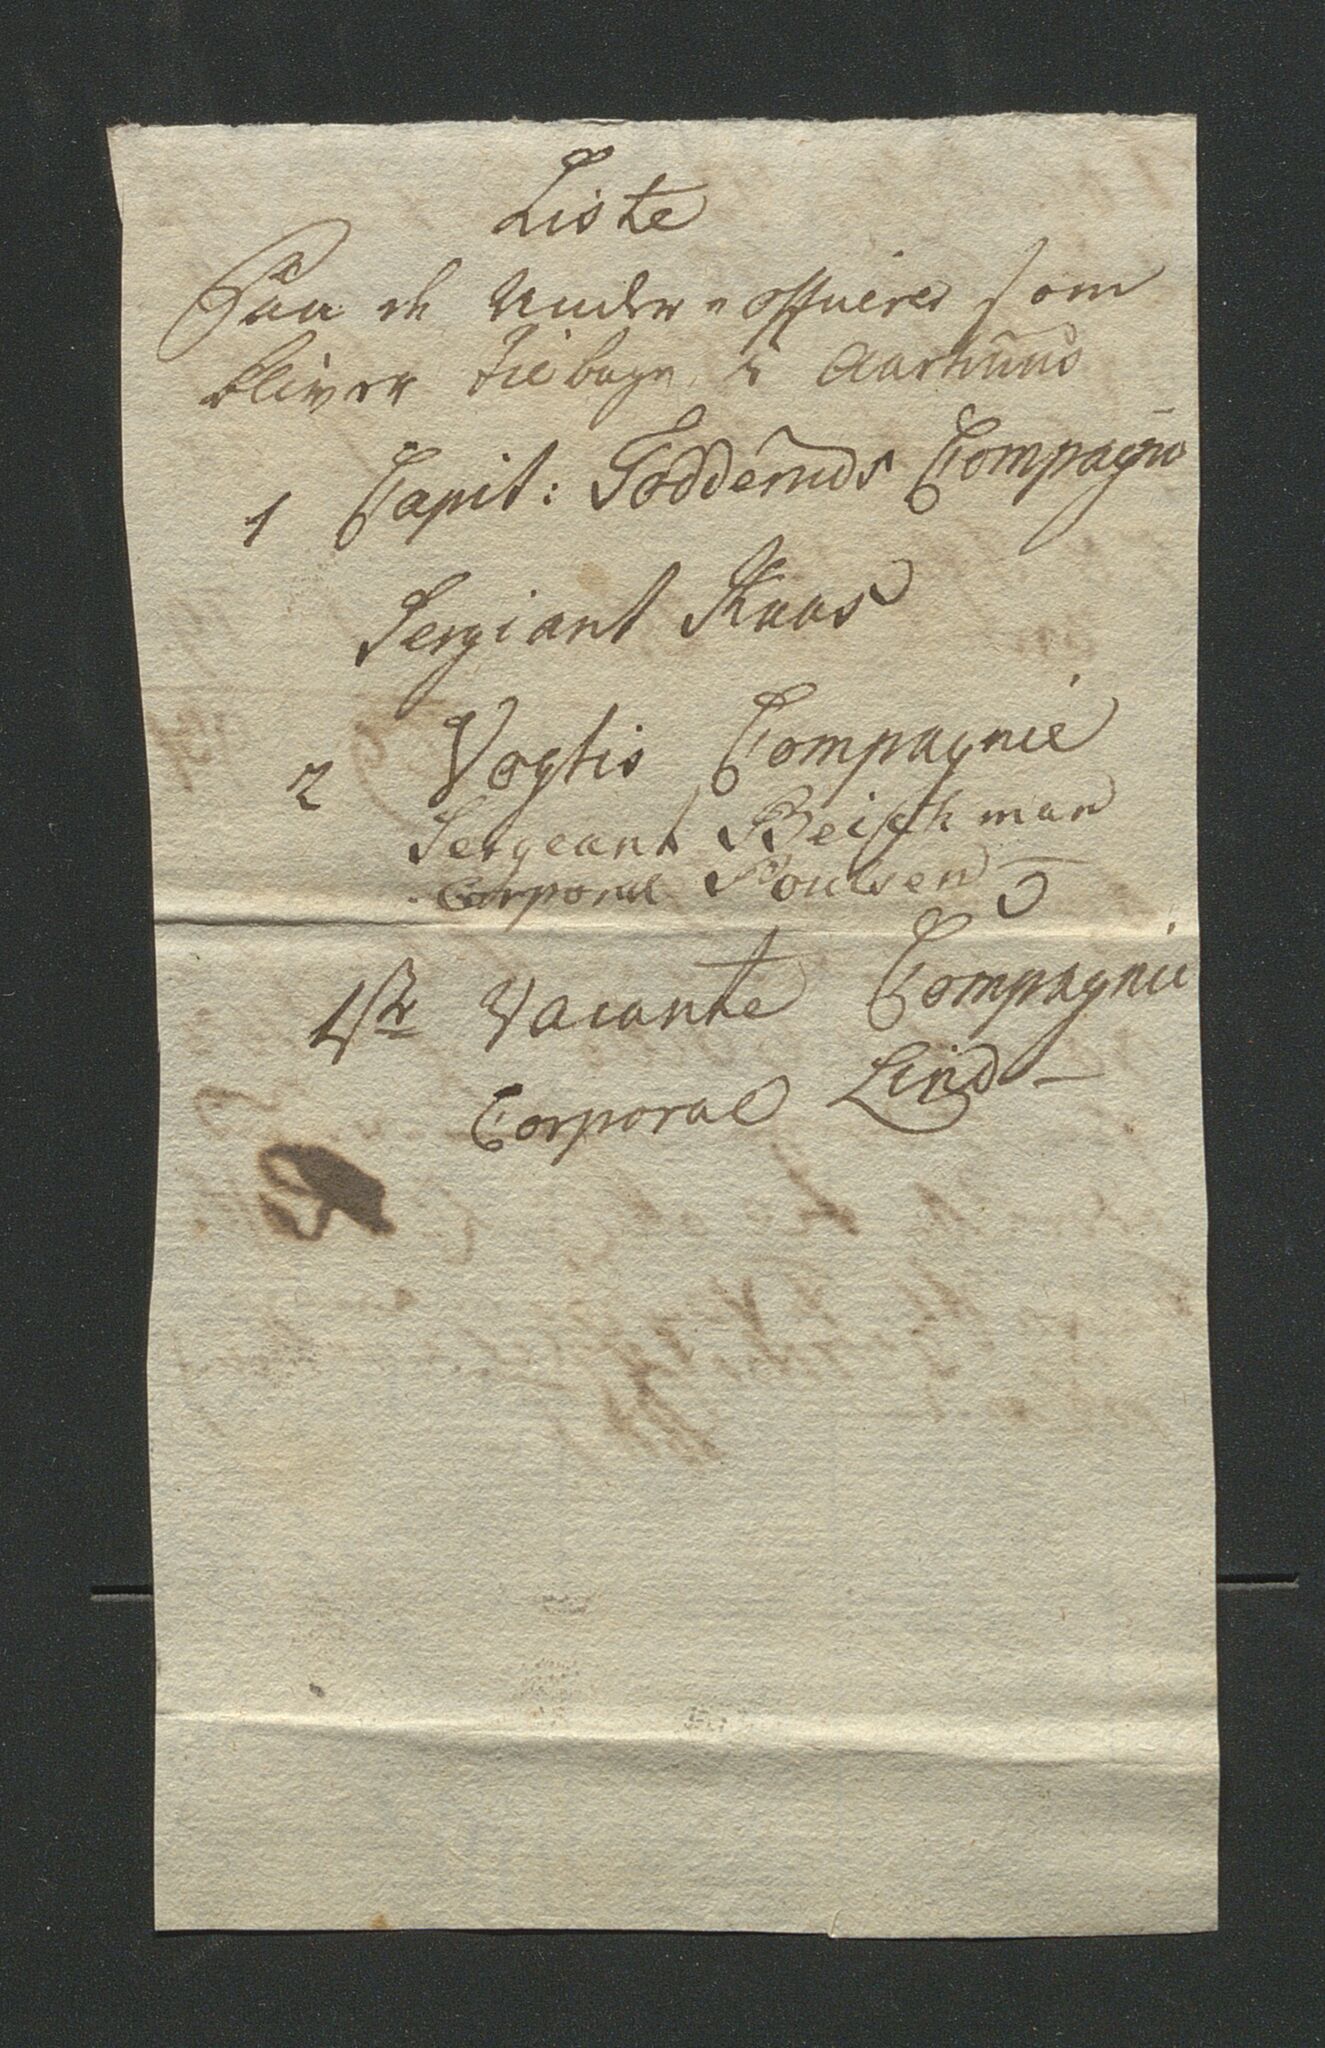 Liste
Paa de Under-officerer som
bliver tilbage i Aarhuus
1 Capit: Toddernds Compagnie
Sergiant Kaas
2 Vogtis Compagnie
Sergeant Beichman
Corporal Poulsen
Vacante Compagnie
Corporal Lind